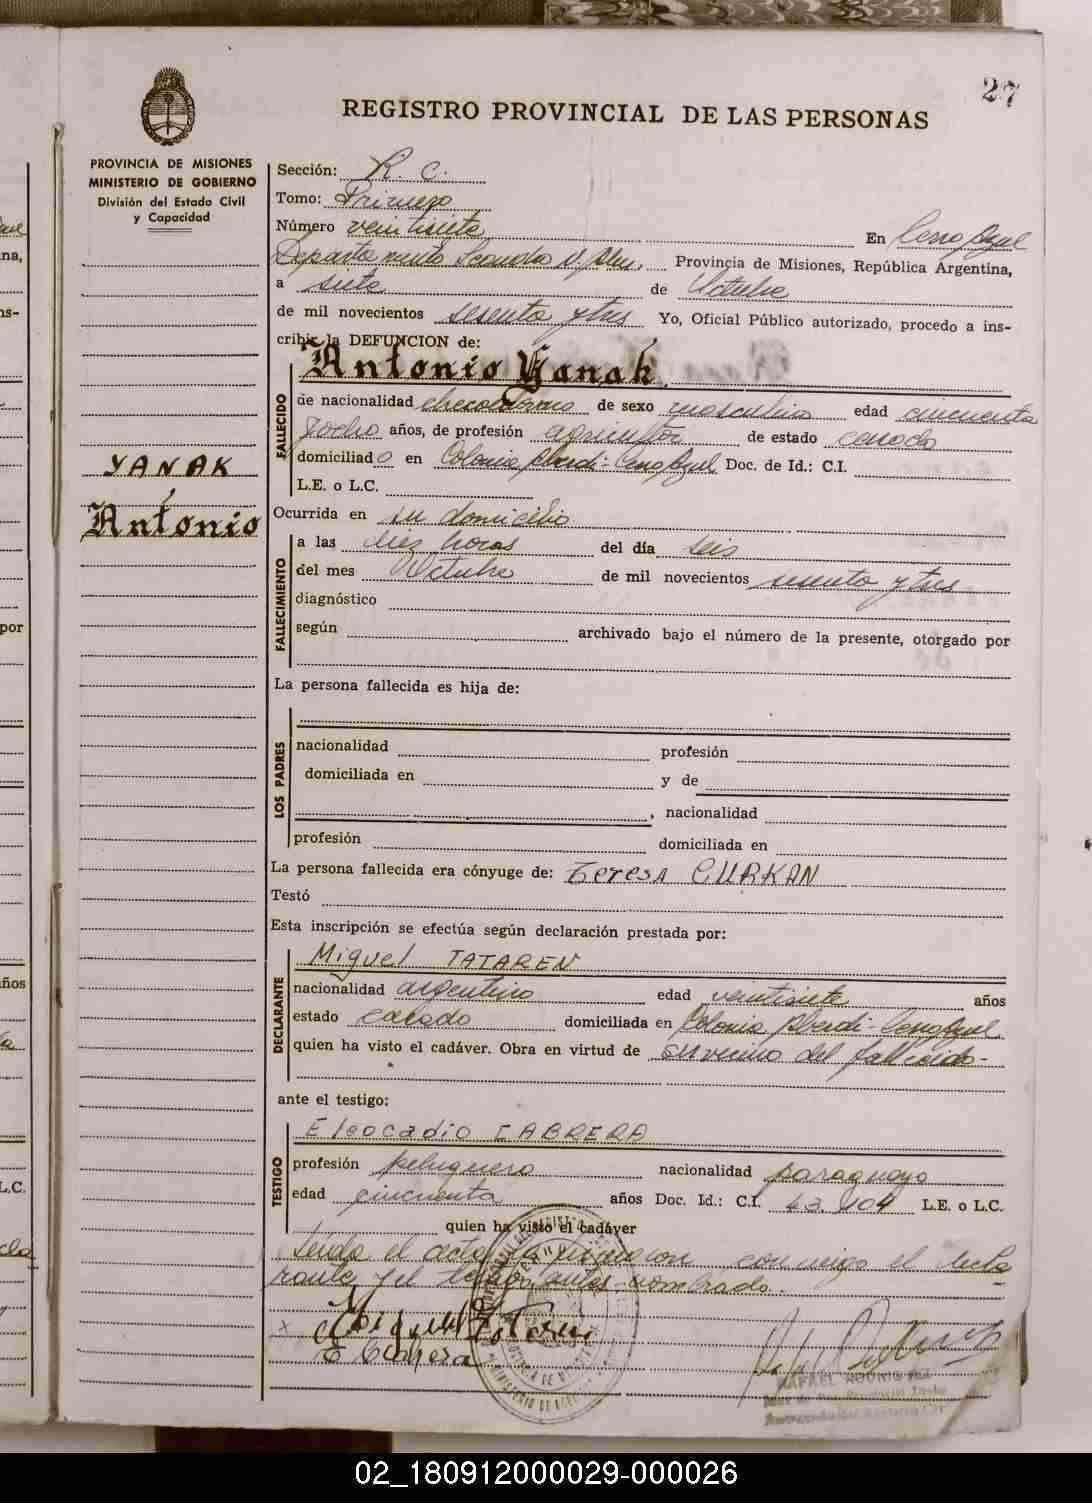 27
REGISTRO PROVINCIAL DE LAS PERSONAS
PROVINCIA DE MISIONES
MINISTERIO DE GOBIERNO
División del Estado Civil
y Capacidad
Sección: R. C.
Tomo: Primero
Número veintisiete En Cerro Azul
Departamento Leandro N. Alem, Provincia de Misiones, República Argentina,
a siete de Octubre
de mil novecientos sesenta y tres Yo, Oficial Público autorizado, procedo a ins-
cribir la DEFUNCION de:
Antonio Yanak
FALLECIDO
de nacionalidad checoslovaco de sexo masculino edad cincuenta
y ocho años, de profesión agricultor de estado casado
domiciliado en Colonia Alberdi - Cerro Azul Doc. de Id.: C.I.
L.E. o L.C.
YANAK
Antonio
Ocurrida en su domicilio
FALLECIMIENTO
a las diez horas del día seis
del mes Octubre de mil novecientos sesenta y tres
diagnóstico
según archivado bajo el número de la presente, otorgado por
La persona fallecida es hija de:
LOS PADRES
nacionalidad profesión
domiciliada en y de
, nacionalidad
profesión domiciliada en
La persona fallecida era cónyuge de: Teresa CURKAN
Testó
Esta inscripción se efectúa según declaración prestada por:
DECLARANTE
Miguel TATAREN
nacionalidad argentino edad veintisiete años
estado casado domiciliada en Colonia Alberdi - Cerro Azul
quien ha visto el cadáver. Obra en virtud de ser vecino del fallecido-
ante el testigo:
TESTIGO
Eleocadio CABRERA
profesión peluquero nacionalidad paraguayo
edad cincuenta años Doc. Id.: C.I. 43.104 L.E. o L.C.
quien ha visto el cadáver
Leída el acta la firmaron conmigo el decla
rante y el testigo antes nombrado.
Miguel Tataren
E Cabrera
RAFAEL RODRIGUEZ
02_180912000029-000026